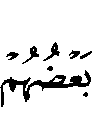 بَعْضُهُمْ